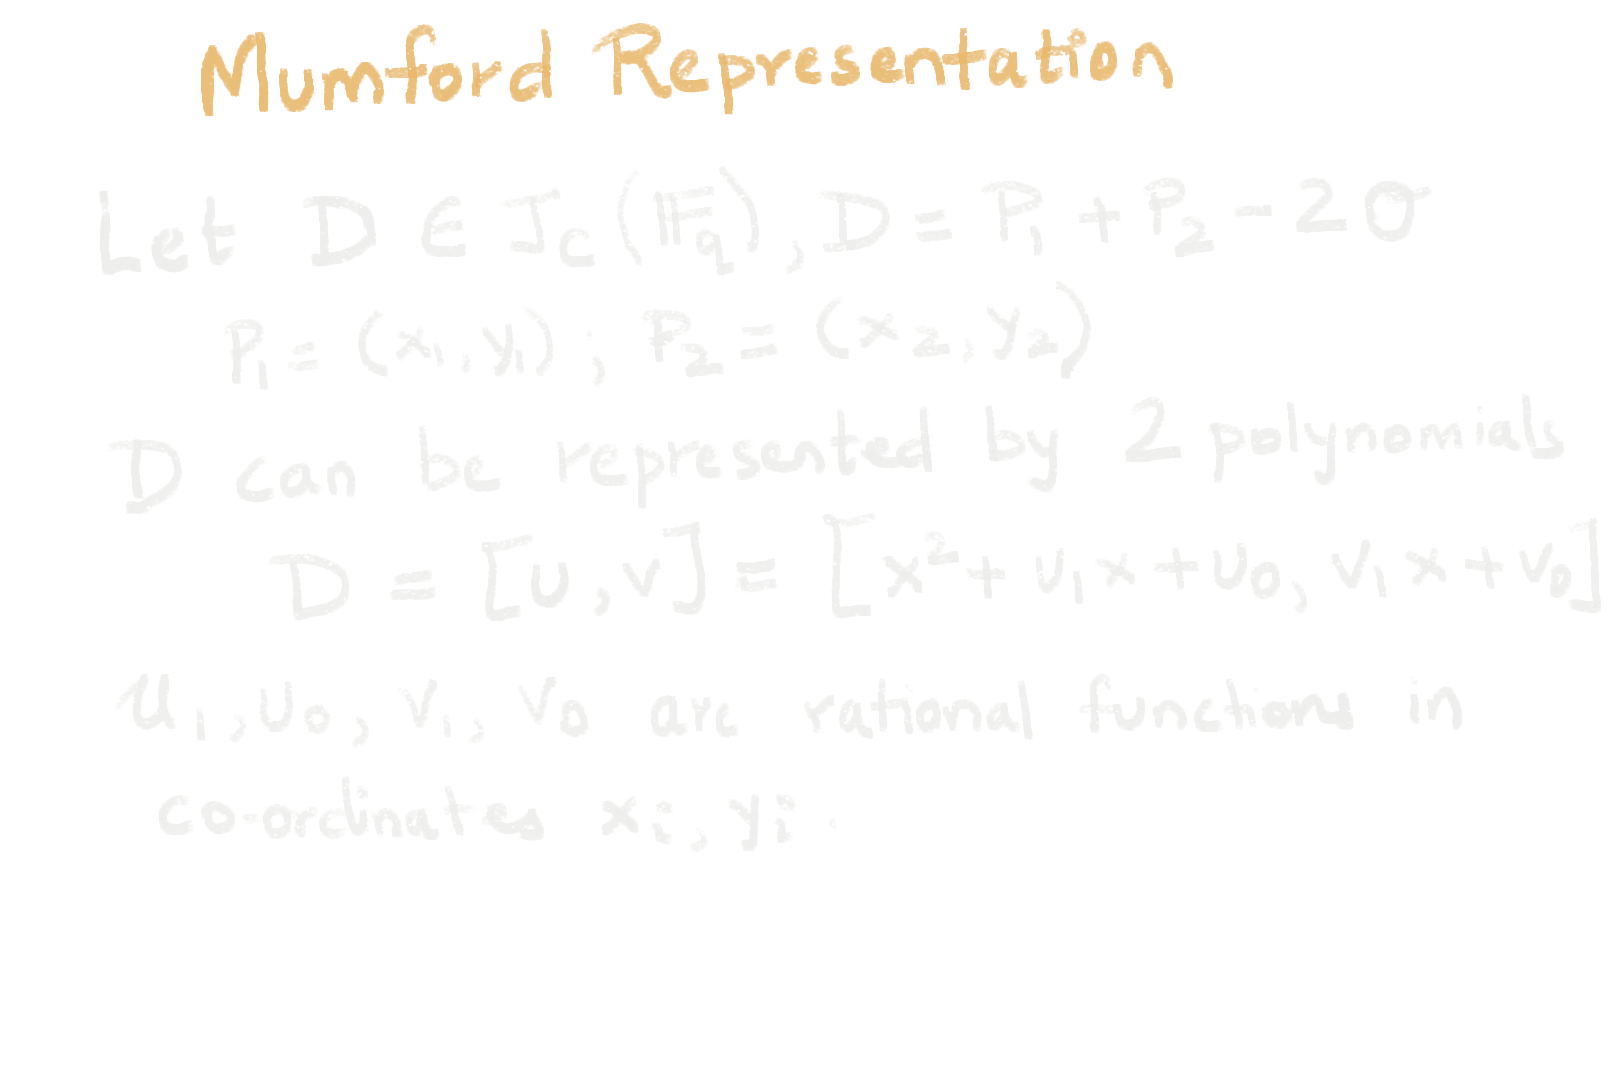 Mumford Representation
Let D ∈ J_C(𝔽_q), D = P_1 + P_2 - 2O
P_1 = (x_1, y_1); P_2 = (x_2, y_2)
D can be represented by 2 polynomials
D = [u, v] = [x^2 + u_1 x + u_0, v_1 x + v_0]
u_1, u_0, v_1, v_0 are rational functions in
co-ordinates x_i, y_i.